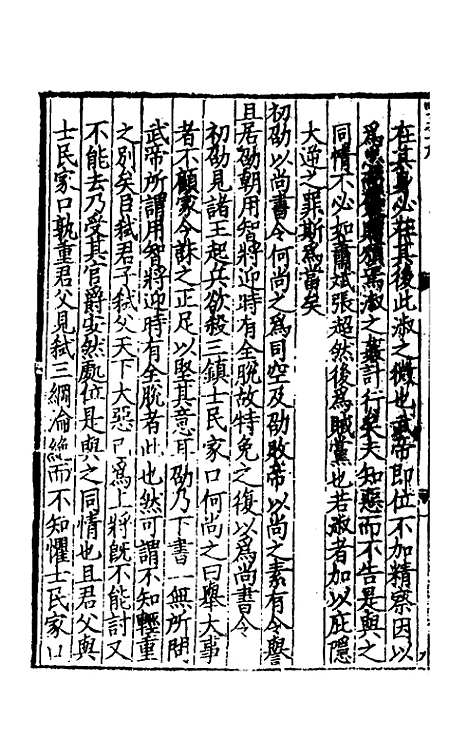 在其身必在其後此淑之微也武帝即位不加精察因以
爲忠贈焉淑之姦計行矣夫知惡而不告是與之
同情不必如蕭斌張超然後爲賊黨也若淑者加以庇隱
大逆之罪斯爲當矣
初劭以尚書令何尚之爲司空及劭敗帝以尚之素有令譽
且居劭朝用智將迎時有全脫故特免之復以爲尚書令
初劭見諸王起兵欲殺三鎮士民家口何尚之曰舉大事
者不顧家今誅之正足以堅其意耳劭乃下書一無所問
武帝所謂用智將迎時有全脫者此也然可謂不知輕重
之別矣臣弒君子弒父天下大惡已爲上將既不能討又
不能去乃受其官爵安然處位是與之同情也且君父與
士民家口孰重君父見弒三綱淪絕而不知懼士民家口